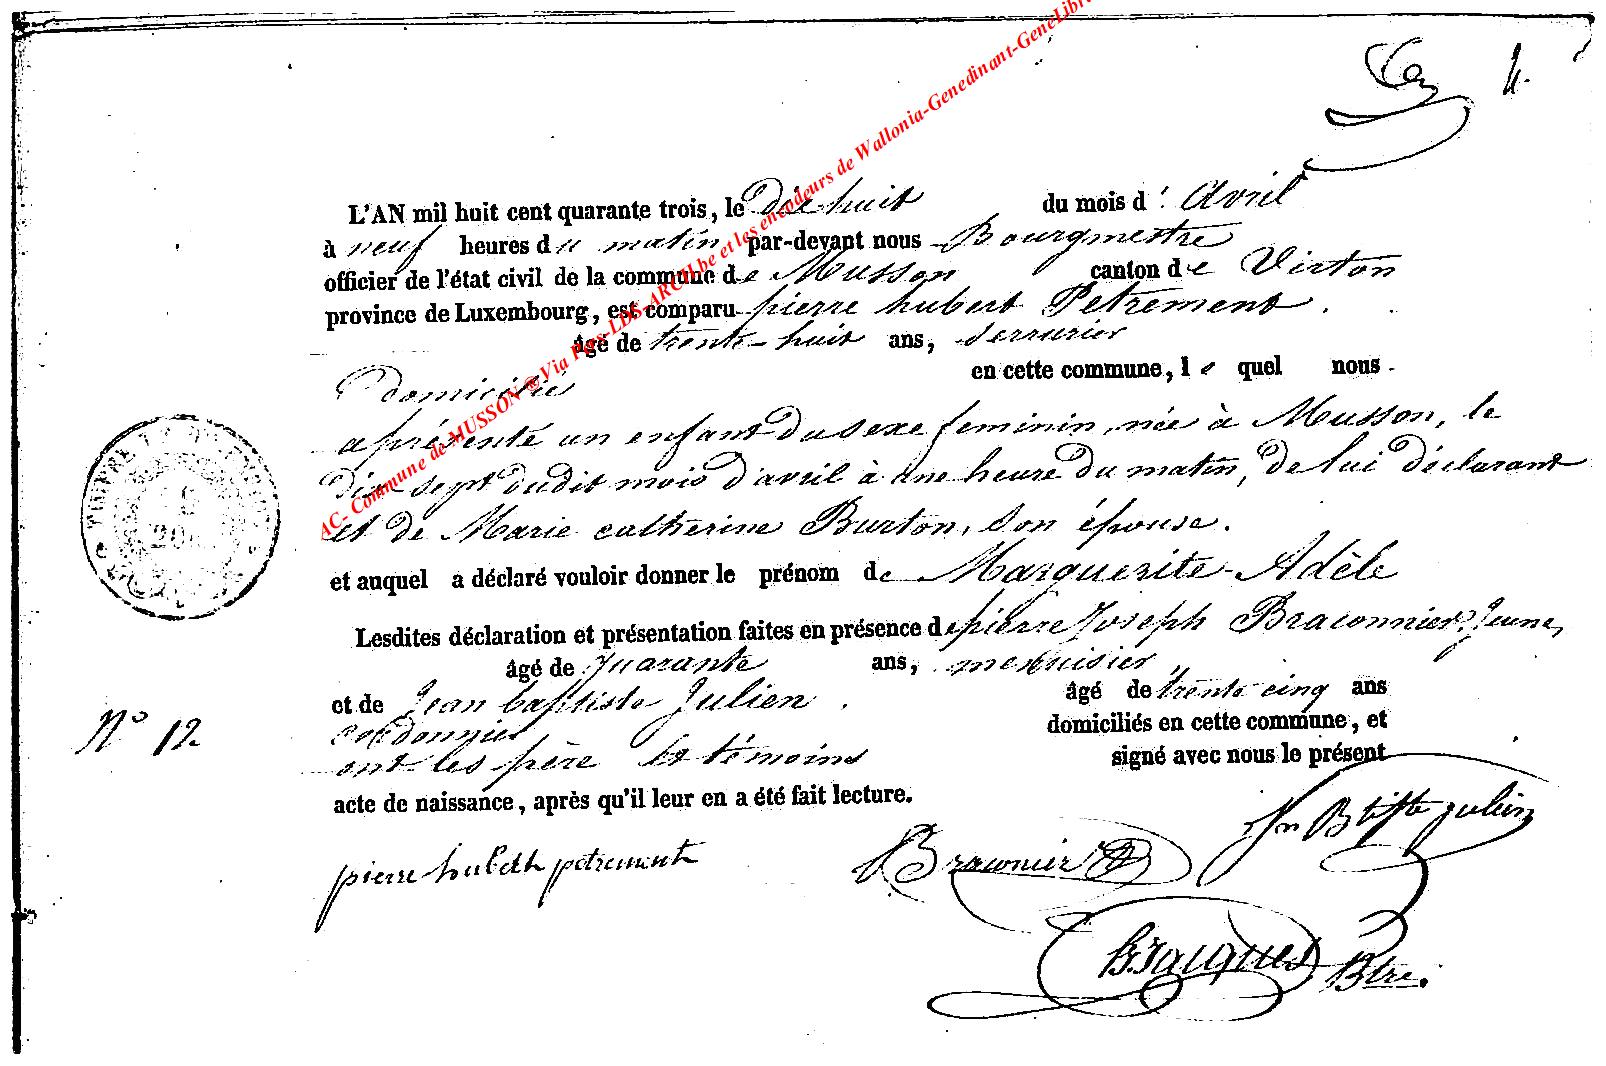 4.
L'AN mil huit cent quarante trois, le dix huit du mois d'Avril
à neuf heures du matin par-devant nous Bourgmestre
officier de l'état civil de la commune de Musson canton de Virton
province de Luxembourg, est comparu pierre hubert Petrement.
âgé de trente-huit ans, Serrurier
domicilié en cette commune, lequel nous
a présenté un enfant du sexe feminin, née à Musson, le
dix sept dudit mois d'avril à une heure du matin, de lui déclarant
et de Marie catherine Burton, son épouse.
et auquel a déclaré vouloir donner le prénom de Marguerite-Adèle
Lesdites déclaration et présentation faites en présence de pierre Joseph Braconnier, Jeune,
âgé de quarante ans, menuisier,
et de Jean baptiste Julien. âgé de trente cinq ans
cordonnier domiciliés en cette commune, et
ont les père et témoins signé avec nous le présent
N° 12.
acte de naissance, après qu'il leur en a été fait lecture.
Jn Btiste julien
pierre hubeth petrement Braconnier
Btre.
AC- Commune de MUSSON @ Via Pgs-LDS-ARCH.be et les encodeurs de Wallonia-Genedinant-GeneLibre